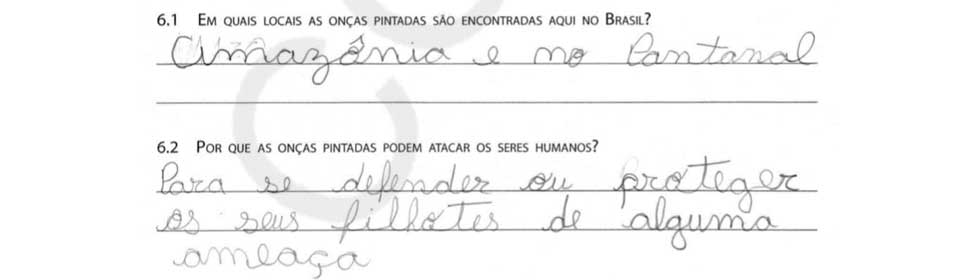 6.1 EM QUAIS LOCAIS AS ONÇAS PINTADAS SÃO ENCONTRADAS AQUI NO BRASIL?
Amazônia e no Pantanal
6.2 POR QUE AS ONÇAS PINTADAS PODEM ATACAR OS SERES HUMANOS?
Para se defender ou proteger
os seus filhotes de alguma
ameaça